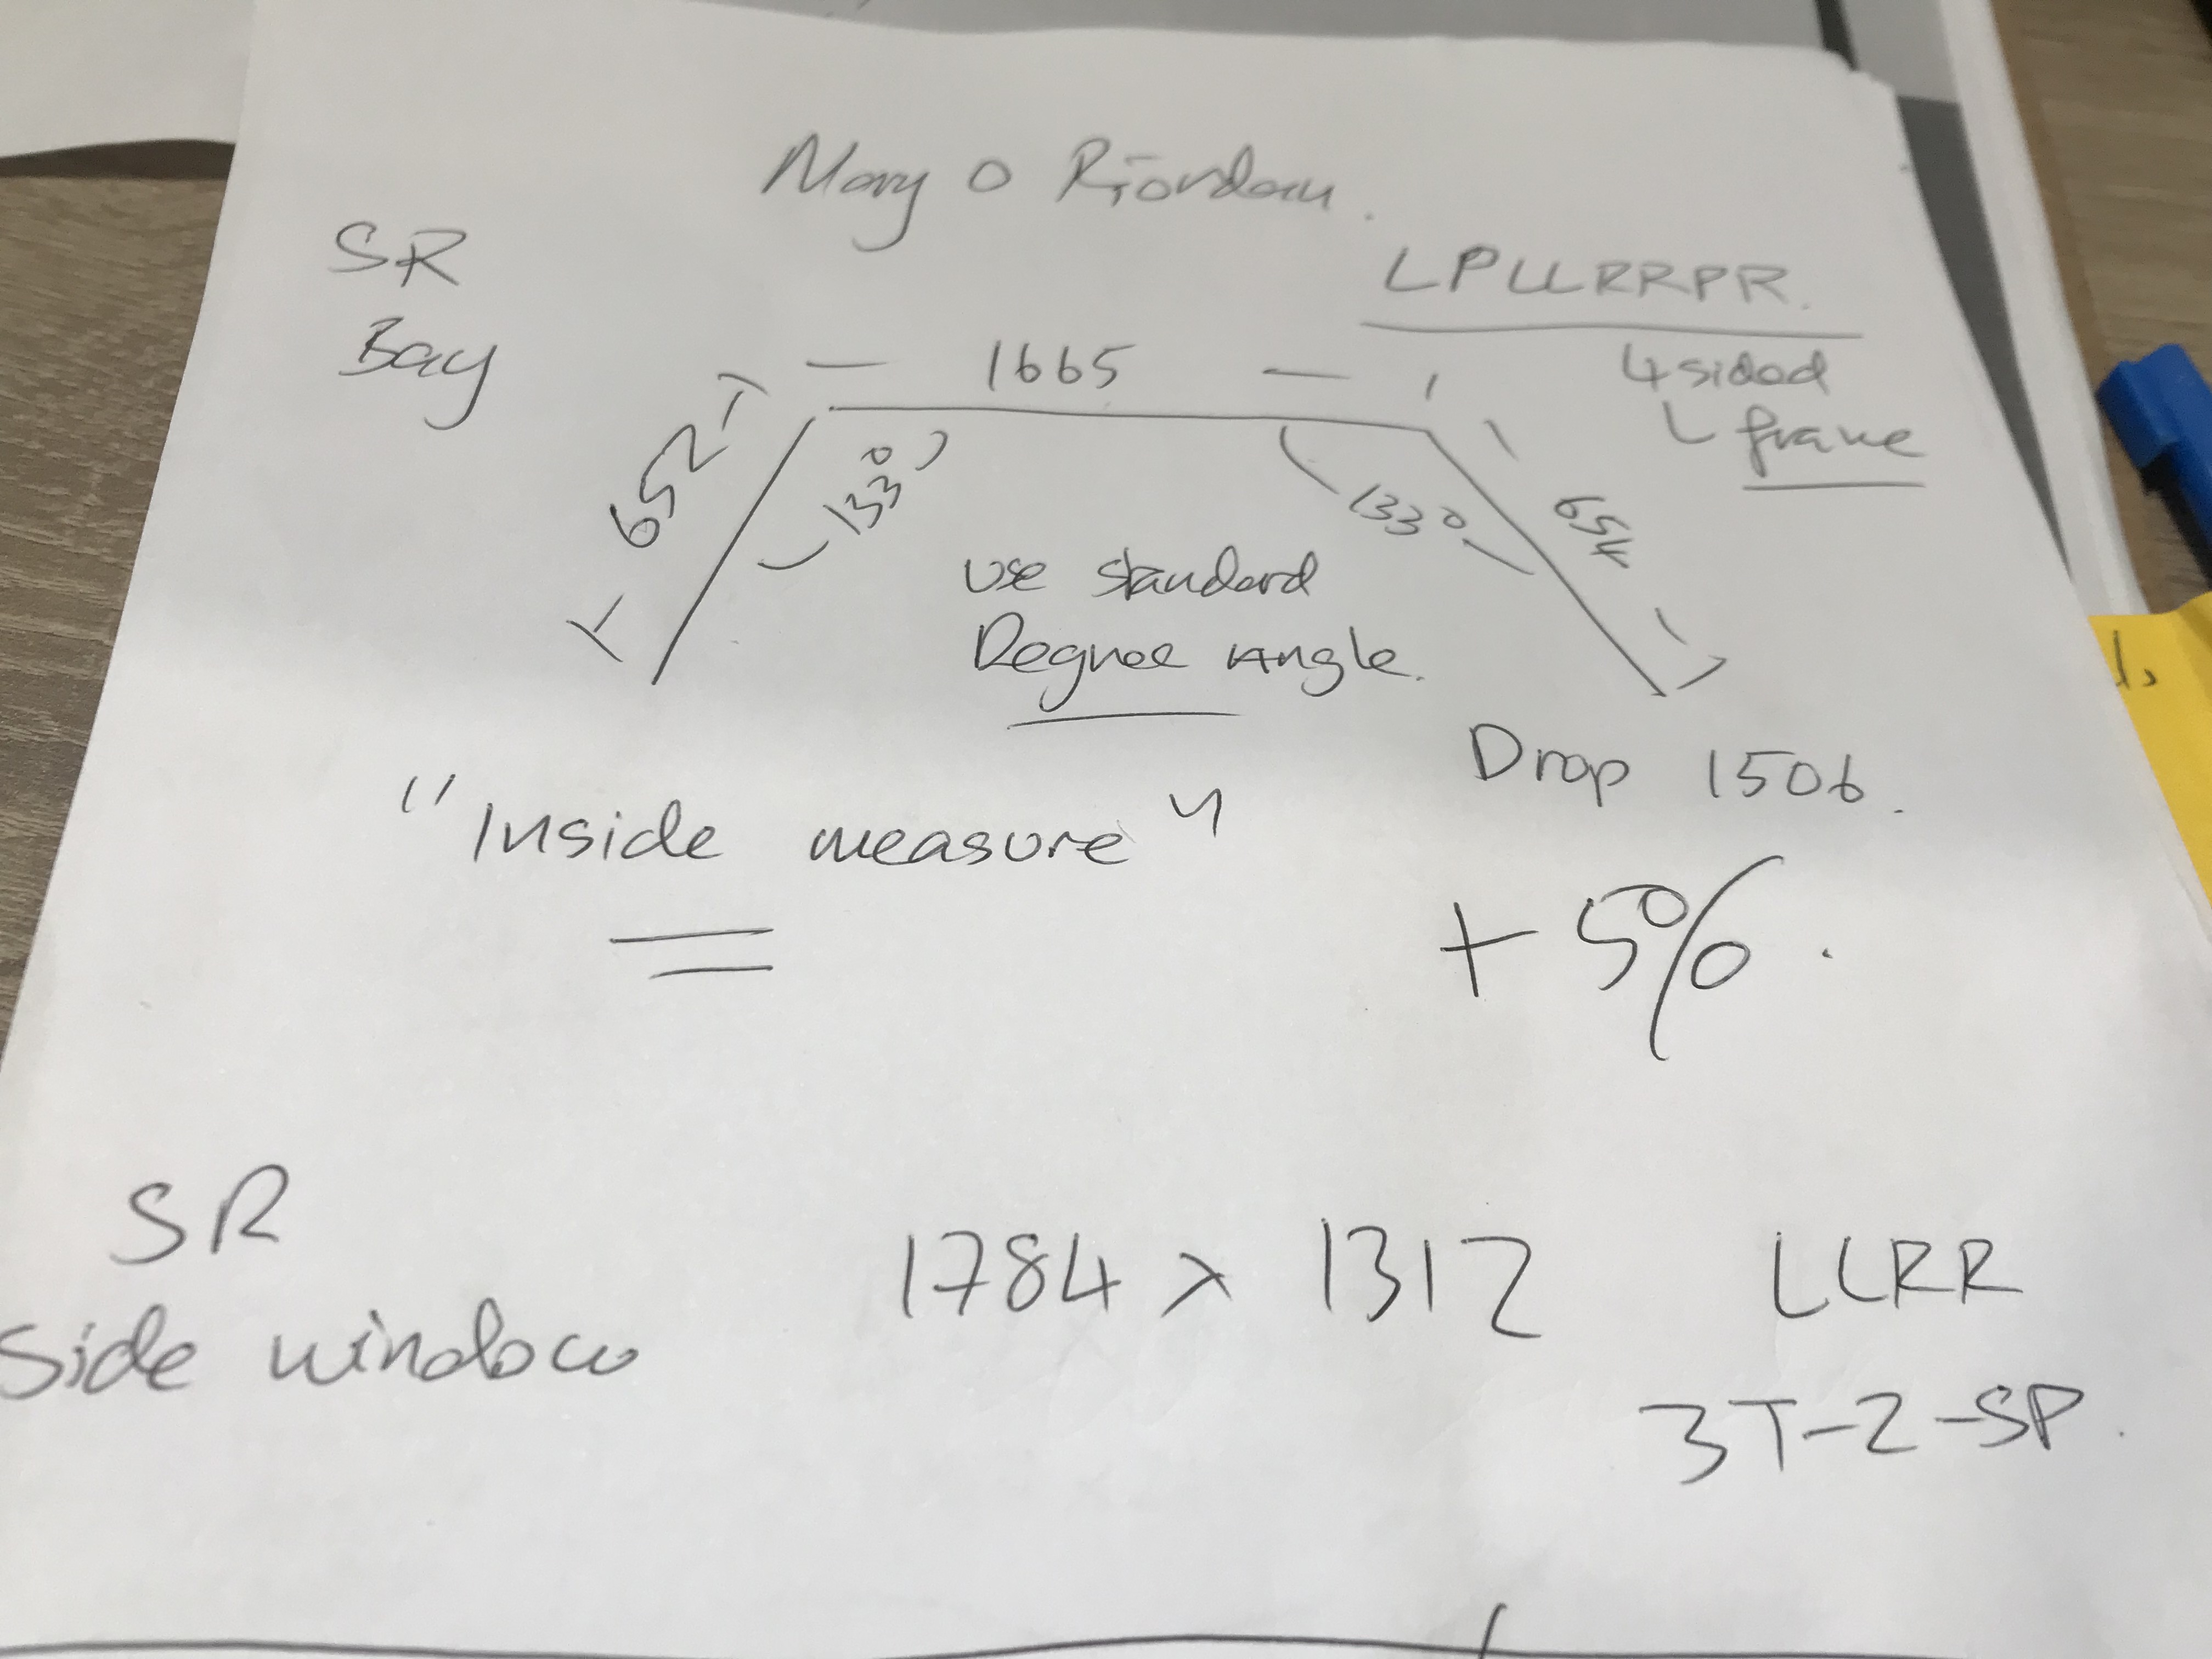 Mary O Riordan.
SR
Bay
LPLLRRPR.
4 sided
L frame
1665
652
133°
133°
654
Use standard
Degree Angle.
Drop 1506.
"Inside measure"
+ 5%.
SR
Side window
1784 x 1312
LLRR
3T-2-SP.